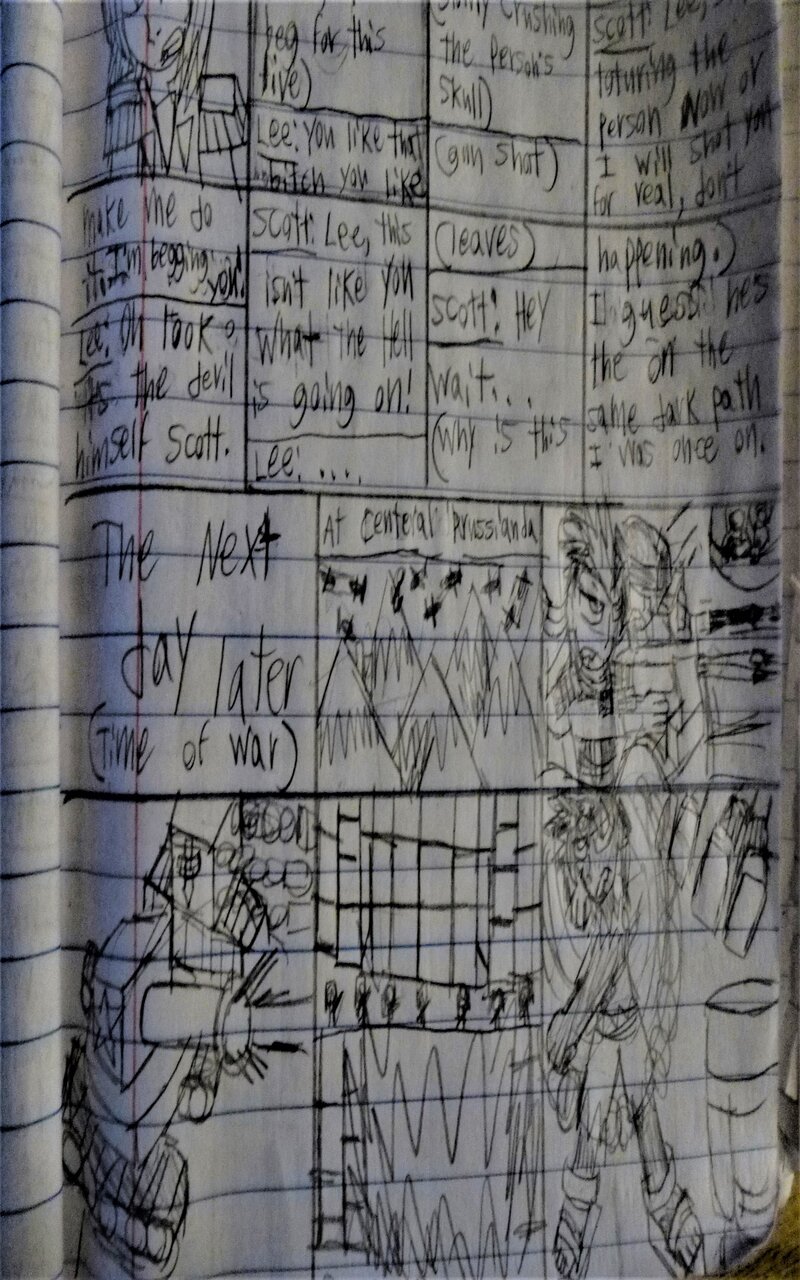 beg for this
live)
Lee: you like that
bitch you like
Crushing
the person's
skull)
(gun shot)
scott: Lee,
toturing the
person now or
I will shot you
for real, don't
make me do
it. I'm begging
you!
Lee: Oh look
its the devil
himself Scott.
scott: Lee, this
isn't like you
What the Hell
is going on!
Lee: ....
(leaves)
scott: Hey
wait...
(why is this
happening.)
I guess hes
the on the
same dark path
I was once on.
The Next
day later
(Time of war)
At Centeral Prussianda